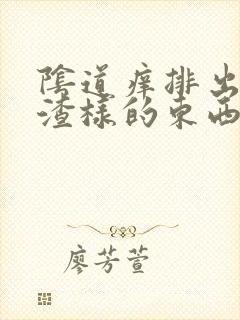 陰道痒排出
渣樣的東西
廖芳萱